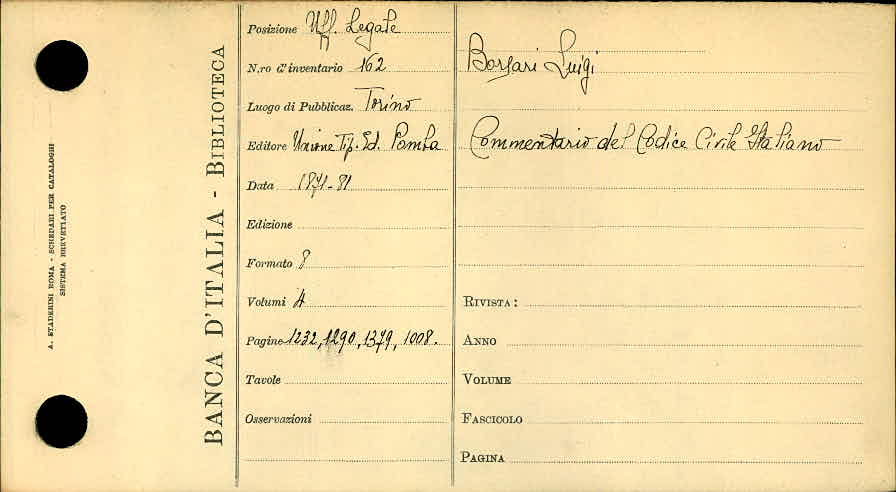 A. STADERINI ROMA - SCHEDARI PER CATALOGHI
SISTEMA BREVETTATO
BANCA D'ITALIA - BIBLIOTECA
Posizione Uff. Legale
N.ro d'inventario 162
Luogo di Pubblicaz. Torino
Editore Unione Tip. Ed. Pomba
Data 1871-81
Edizione
Formato 8
Volumi 4
Pagine 1232, 1290, 1379, 1008.
Tavole
Osservazioni
Borsari Luigi
Commentario del Codice Civile Italiano
RIVISTA:
ANNO
VOLUME
FASCICOLO
PAGINA